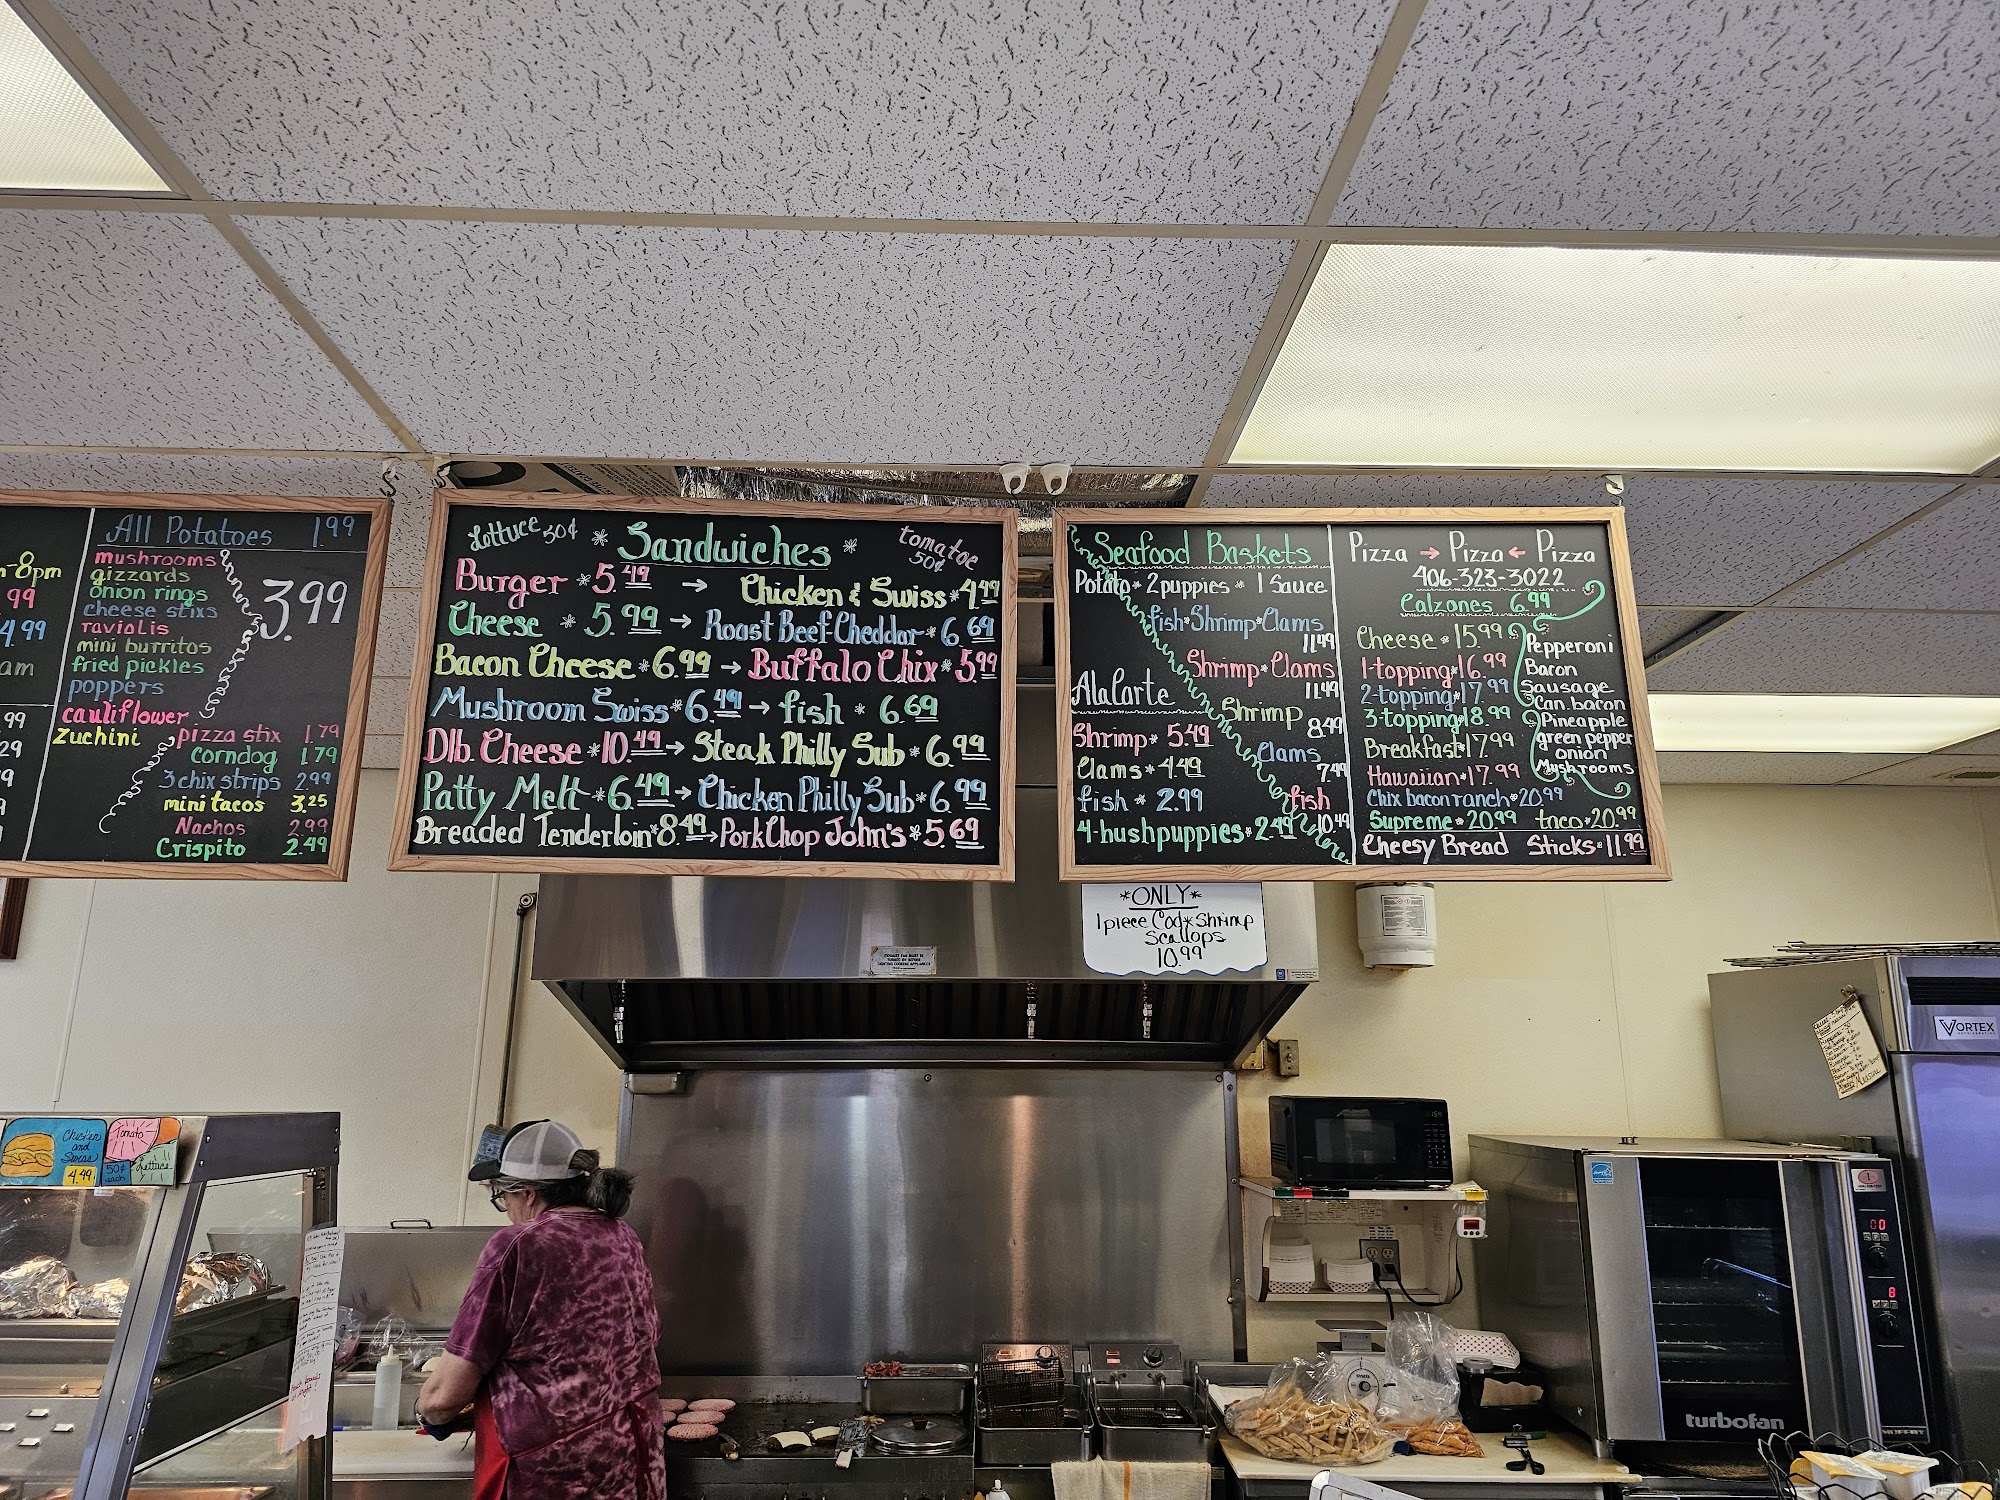 -8pm
.99
4.99
am
.99
.29
All Potatoes 1.99
mushrooms
gizzards
onion rings
cheese stixs
raviolis
mini burritos
fried pickles
poppers
cauliflower
Zuchini
3.99
pizza stix 1.79
corndog 1.79
3 chix strips 2.99
mini tacos 3.25
Nachos 2.99
Crispito 2.49
Lettuce 50¢ * Sandwiches * tomatoe 50¢
Burger * 5.49 → Chicken & Swiss * 4.49
Cheese * 5.99 → Roast Beef Cheddar * 6.69
Bacon Cheese * 6.99 → Buffalo Chix * 5.99
Mushroom Swiss * 6.49 → fish * 6.69
Dlb. Cheese * 10.49 → Steak Philly Sub * 6.99
Patty Melt * 6.49 → Chicken Philly Sub * 6.99
Breaded Tenderloin * 8.49 → Pork Chop John's * 5.69
Seafood Baskets
Potato * 2 puppies * 1 Sauce
fish * Shrimp * Clams
11.49
Shrimp * Clams
11.49
Shrimp
8.49
Clams
7.49
fish
10.49
AlaCarte
Shrimp * 5.49
Clams * 4.49
fish * 2.99
4-hushpuppies * 2.49
Pizza → Pizza ← Pizza
406-323-3022
Calzones 6.99
Cheese * 15.99
1-topping * 16.99
2-topping * 17.99
3-topping * 18.99
Breakfast * 17.99
Hawaiian * 17.99
Chix bacon ranch * 20.99
Supreme * 20.99 taco * 20.99
Cheesy Bread Sticks * 11.99
Pepperoni
Bacon
Sausage
Can. bacon
Pineapple
green pepper
onion
Mushrooms
*ONLY*
1 piece Cod * Shrimp
Scallops
10.99
VORTEX
Chicken
and
Swiss
4.49
Tomato
50¢
each
Lettuce
turbofan
MOFFAT